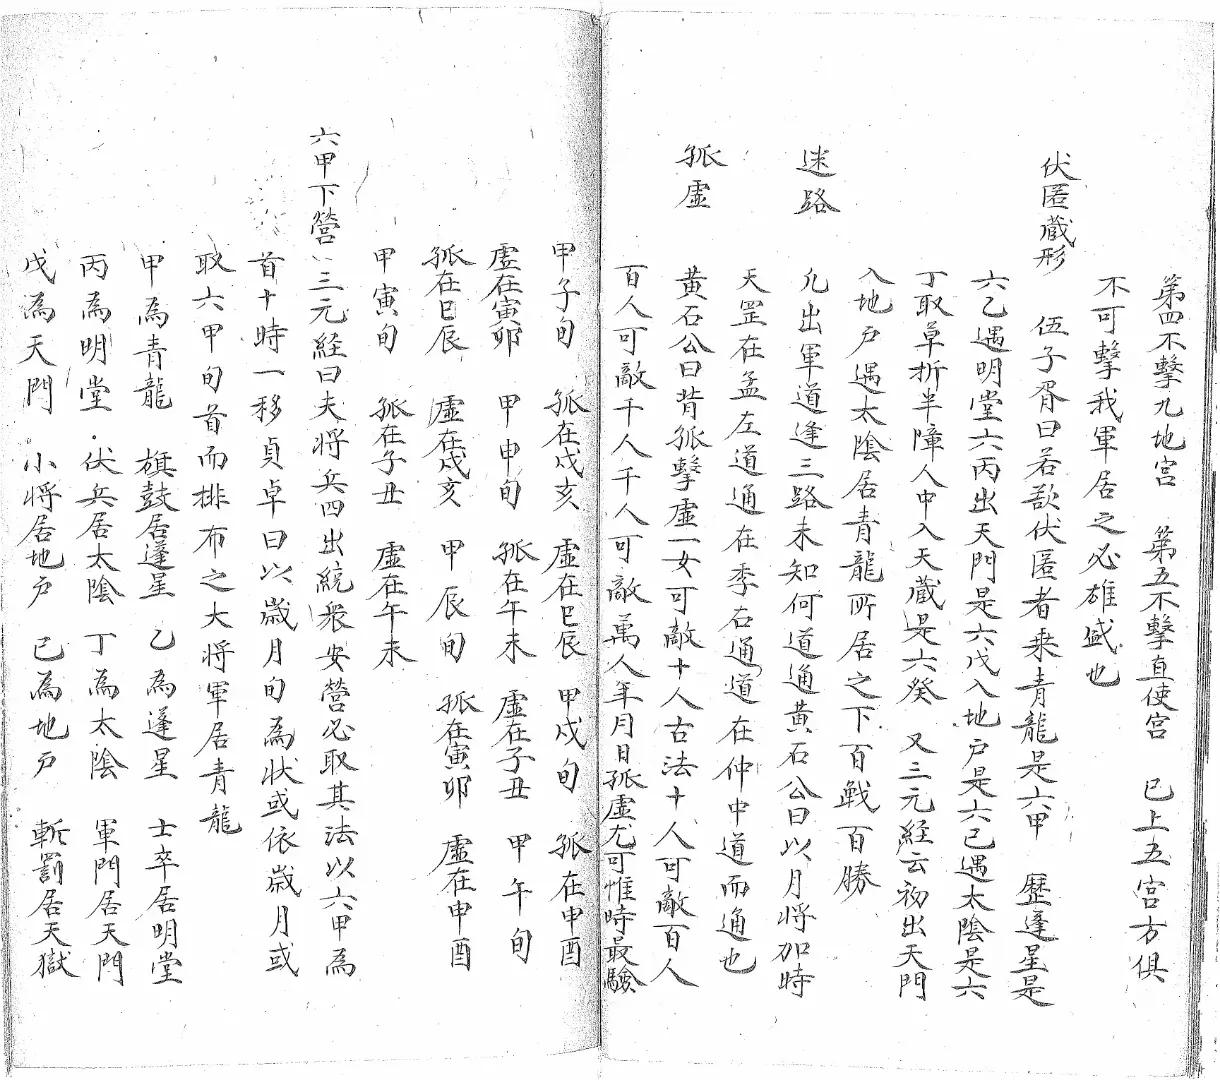 第四不擊九地宮　第五不擊直使宮　已上五宮方俱
不可擊我軍居之必雄盛也
伏匿藏形　伍子胥曰若欲伏匿者乘青龍是六甲　歷蓬星是
六乙遇明堂六丙出天門是六戊入地户是六已遇太陰是六
丁取草折半障人中入天藏是六癸　又三元經云初出天門
入地户遇太陰居青龍所居之下百戰百勝
迷路　凢出軍道逢三路未知何道通黃石公曰以月將加時
天罡在孟左道通在季右通道在仲中道而通也
孤虛　黃石公曰背孤擊虛一女可敵十人古法十人可敵百人
百人可敵千人千人可敵萬人年月日孤虛尤可惟時最驗
甲子旬　孤在戌亥　虛在巳辰　甲戌旬　孤在申酉
虛在寅卯　甲申旬　孤在午未　虛在子丑　甲午旬
孤在巳辰　虛在戌亥　甲辰旬　孤在寅卯　虛在申酉
甲寅旬　孤在子丑　虛在午未
六甲下營　三元經曰夫將兵四出統衆安營必取其法以六甲為
首十時一移貞卓曰以歲月旬為狀或依歲月或
取六甲旬首而排布之大將軍居青龍
甲為青龍　旗鼓居蓬星　乙為蓬星　士卒居明堂
丙為明堂　伏兵居太陰　丁為太陰　軍門居天門
戊為天門　小將居地户　已為地户　斬罰居天獄